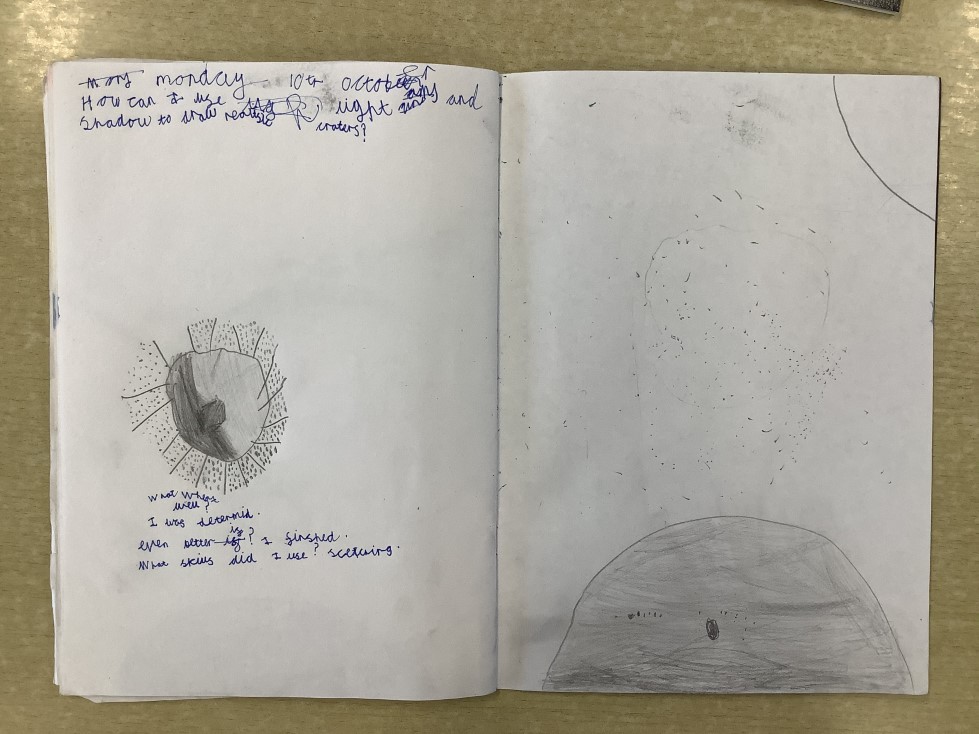 monday 10th october
How can I use light and
shadow to draw realistic craters?
What whent
well?
I was determid.
even better if? I finshed.
What skills did I use? scetching.